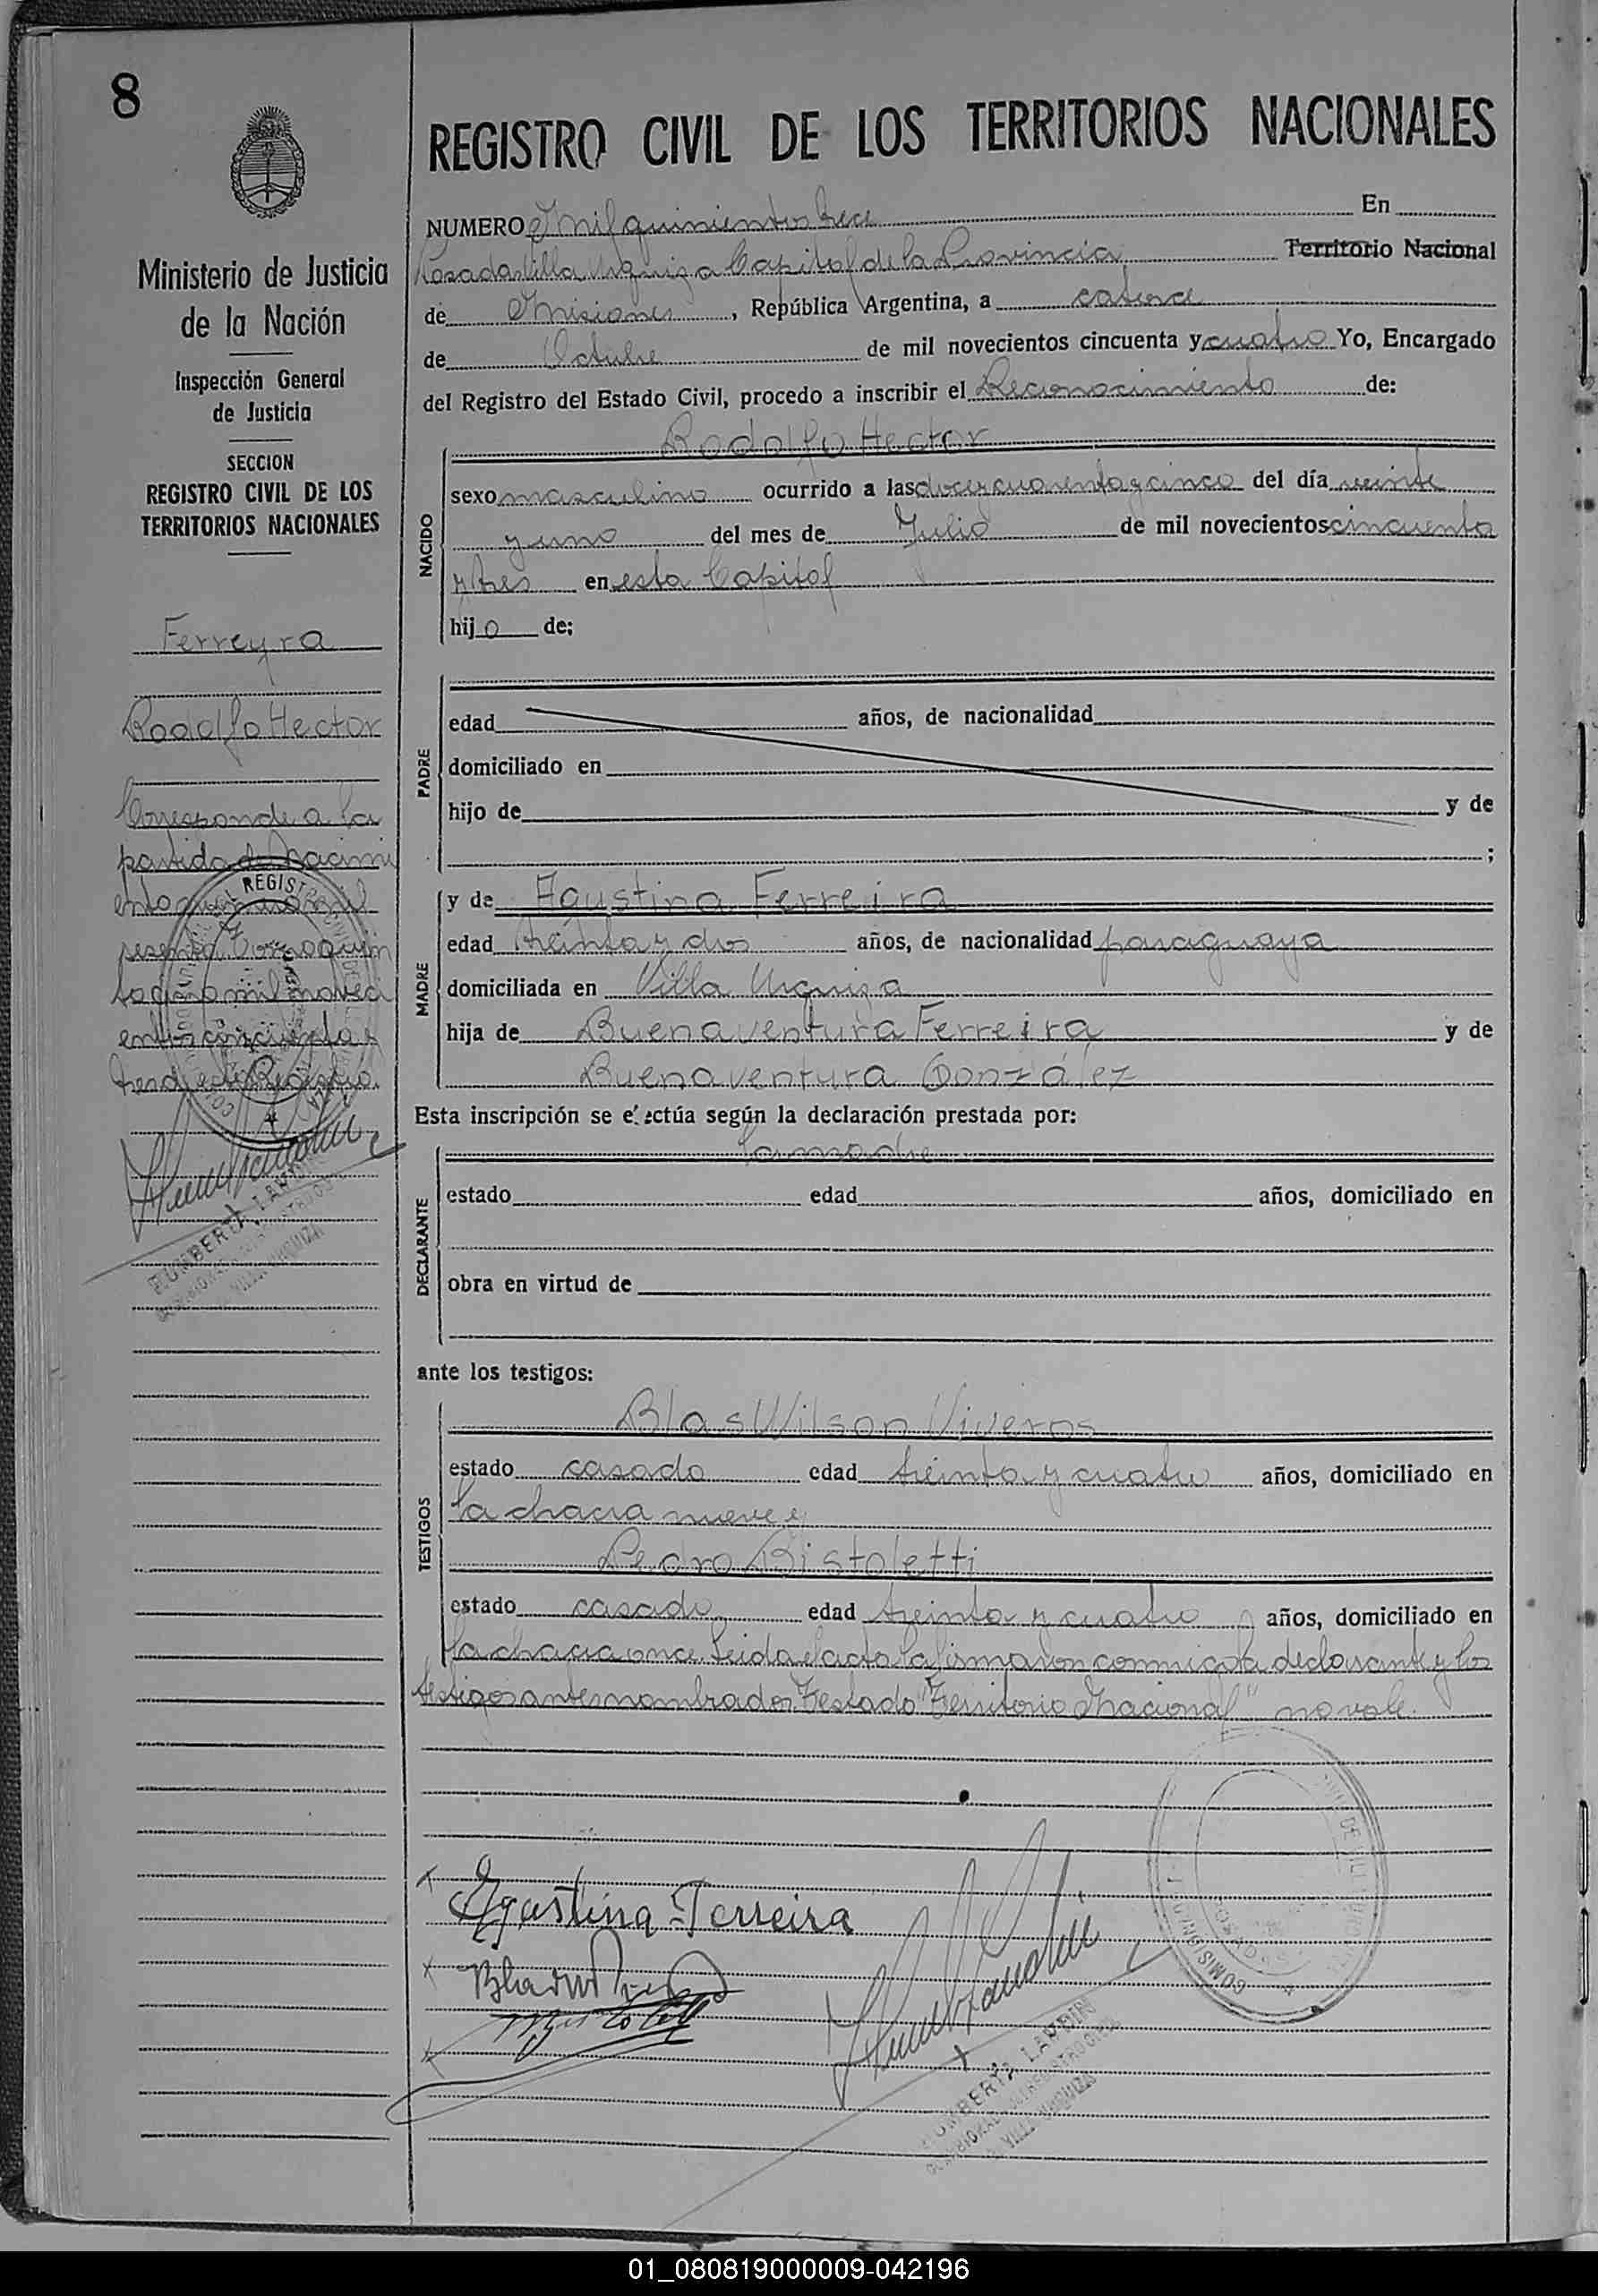 8
REGISTRO CIVIL DE LOS TERRITORIOS NACIONALES
Ministerio de Justicia
de la Nación
Inspección General
de Justicia
SECCION
REGISTRO CIVIL DE LOS
TERRITORIOS NACIONALES
Ferreyra
Rodolfo Hector
Corresponde a la
partida de Nacimi
ento
mil noveci
entos cincuenta y
tres de este Registro.
NUMERO mil quinientos trece En
Posadas Villa Urquiza Capital de la Provincia Territorio Nacional
de Misiones, República Argentina, a catorce
de Octubre de mil novecientos cincuenta y cuatro Yo, Encargado
del Registro del Estado Civil, procedo a inscribir el Reconocimiento de:
NACIDO
Rodolfo Hector
sexo masculino ocurrido a las doce y cuarenta y cinco del día veinte
y uno del mes de Julio de mil novecientos cincuenta
y tres en esta Capital
hijo de:
PADRE
edad años, de nacionalidad
domiciliado en
hijo de y de
;
MADRE
y de Agustina Ferreira
edad treinta y dos años, de nacionalidad paraguaya
domiciliada en Villa Urquiza
hija de Buenaventura Ferreira y de
Buenaventura González
Esta inscripción se efectúa según la declaración prestada por:
DECLARANTE
La madre
estado edad años, domiciliado en
obra en virtud de
ante los testigos:
TESTIGOS
Blas Wilson Viveros
estado casado edad treinta y cuatro años, domiciliado en
la chacra nueve y
Pedro Bistoletti
estado casado edad treinta y cuatro años, domiciliado en
la chacra once. Leida el acta la firmaron conmigo la declarante y los
testigos antes nombrados. Testado "Territorio Nacional" no vale.
Agustina Ferreira
01_080819000009-042196